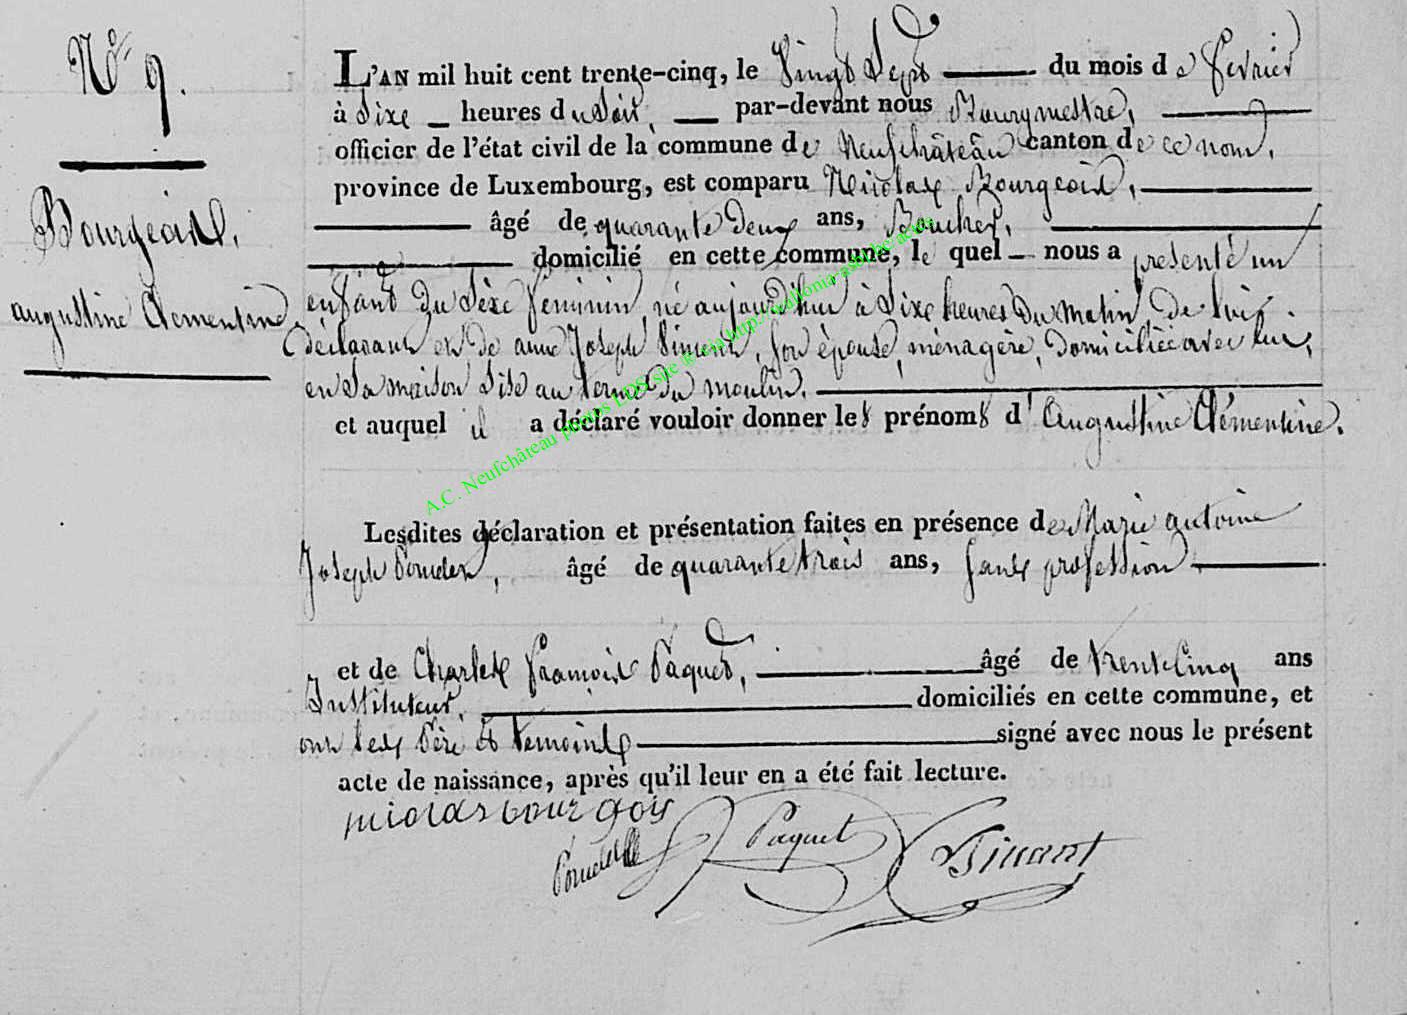 N° 9.
Bourgeois,
augustine Clementine
L'AN mil huit cent trente-cinq, le Vingt Sept du mois de fevrier
à Sixe heures du Soir, par-devant nous Bourgmestre,
officier de l'état civil de la commune de Neufchâteau canton de ce nom,
province de Luxembourg, est comparu Nicolas Bourgeois,
âgé de quarante deux ans, Boucher,
domicilié en cette commune, le quel nous a presenté un
enfant du Sèxe feminin né aujourd'hui à Sixe heures Du Matin, De lui
déclarant et de anne Joseph, Son épouse, ménagère, domiciliée avec lui,
en Sa maison Sise au du moulin.
et auquel il a déclaré vouloir donner les prénoms d'Augustine Clémentine.
Lesdites déclaration et présentation faites en présence de Marie antoine
Joseph, âgé de quarante trois ans, Sans profession,
et de Charles françois Paquet, âgé de trente Cinq ans
Instituteur, domiciliés en cette commune, et
ont les Père et temoins signé avec nous le présent
acte de naissance, après qu'il leur en a été fait lecture.
nicolas bourgois
Paquet
A.C. Neufchâteau photos LDS, site